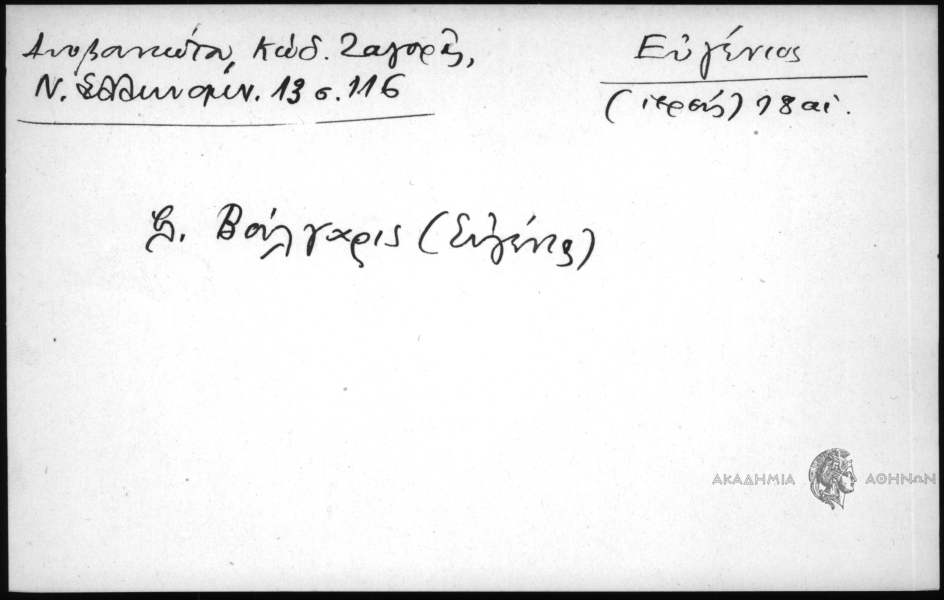 Λυοβανιώτα, Κώδ. Ζαγορᾶς,
Ν. Ἑλληνομν. 13 σ. 116
Εὐγένιος
(ἱερεύς) 18 αἰ.
Βούλγαρις (Εὐγένιος)
ΑΚΑΔΗΜΙΑ ΑΘΗΝΩΝ